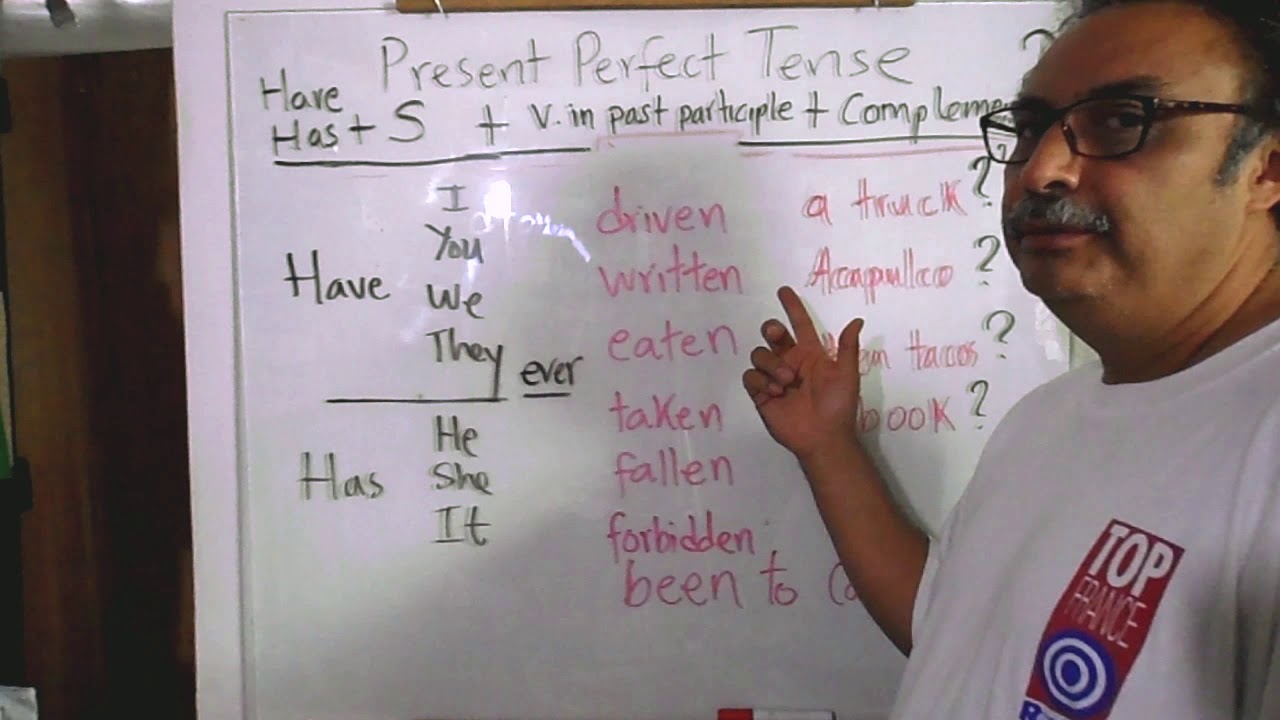 Present Perfect Tense ?
Have
Has + S + V. in past participle + Complem
I
You
We
They
Have
ever
He
She
It
Has
driven a truck ?
written Acapulco ?
eaten tacos ?
taken book ?
fallen
forbidden
been to
TOP
FRANCE